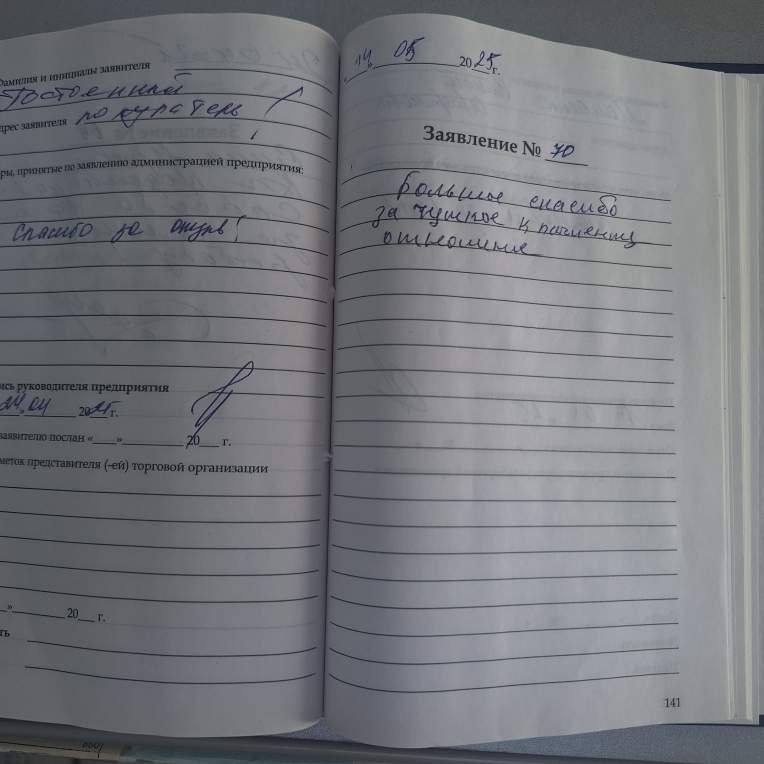 Фамилия и инициалы заявителя
Постоенный
дрес заявителя покупатель
ры, принятые по заявлению администрацией предприятия:
Спасибо за отзыв!
ись руководителя предприятия
24.04 2025 г.
заявителю послан «___»________ 20___ г.
меток представителя (-ей) торговой организации
__»________ 20___ г.
ть
14 05 2025г.
Заявление № 70
Большое спасибо
за чуткое к пациенту
отношение
141